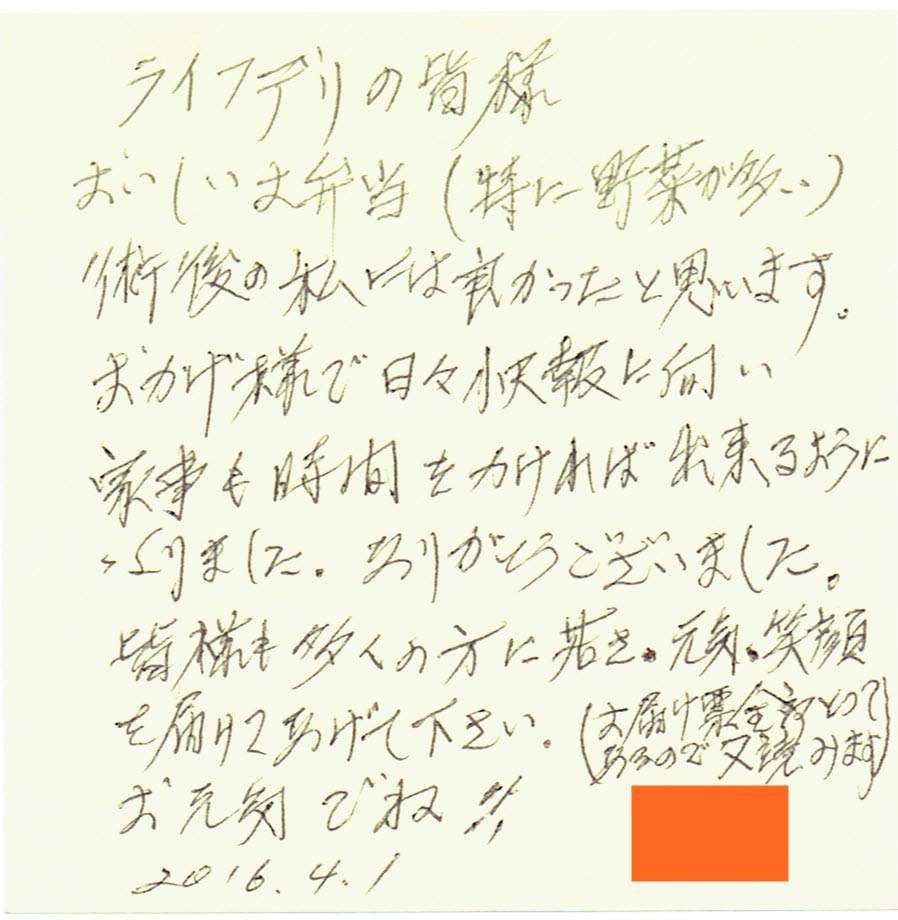 ライフデリの皆様
おいしいお弁当(特に野菜が多い)
術後の私には良かったと思います。
おかげ様で日々快報に向い
家事も時間をかければ出来るように
なりました。ありがとうございました。
皆様も多くの方に若さ、元気、笑顔
を届けてあげて下さい。
(お届け票全部とって
あるので又読みます)
お元気でね!!
2016.4.1